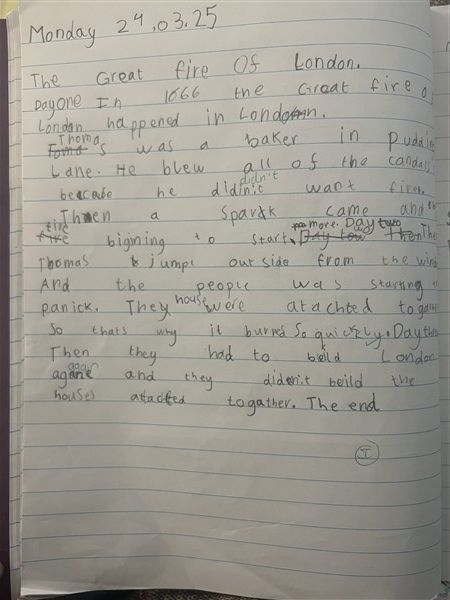 Monday 24.03.25
The Great fire Of London.
Day one In 1666 the Great fire of
London happened in London.
Thomas was a baker in puddin
Lane. He blew all of the candals
because he didn't want fire.
Then a spark came and the
fire bigining to start. no more. Day two The
Thomas jumpt out side from the wind
And the people was starting
panick. They house were atachted togathe
So thats why it burred So quickly. Day thre
Then they had to beild London
again and they diden't beild the
houses attacted togather. The end
I